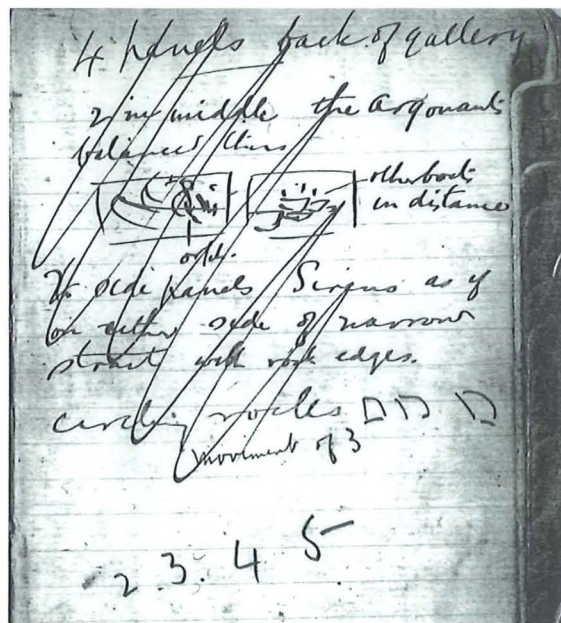 4 panels back of gallery
2 in middle the Argonauts
balanced thus
other boats
in distance
2 side panels Sirens as if
on either side of narrow
strait with rock edges.
circling rocks
movement of 3
2 3. 4 5